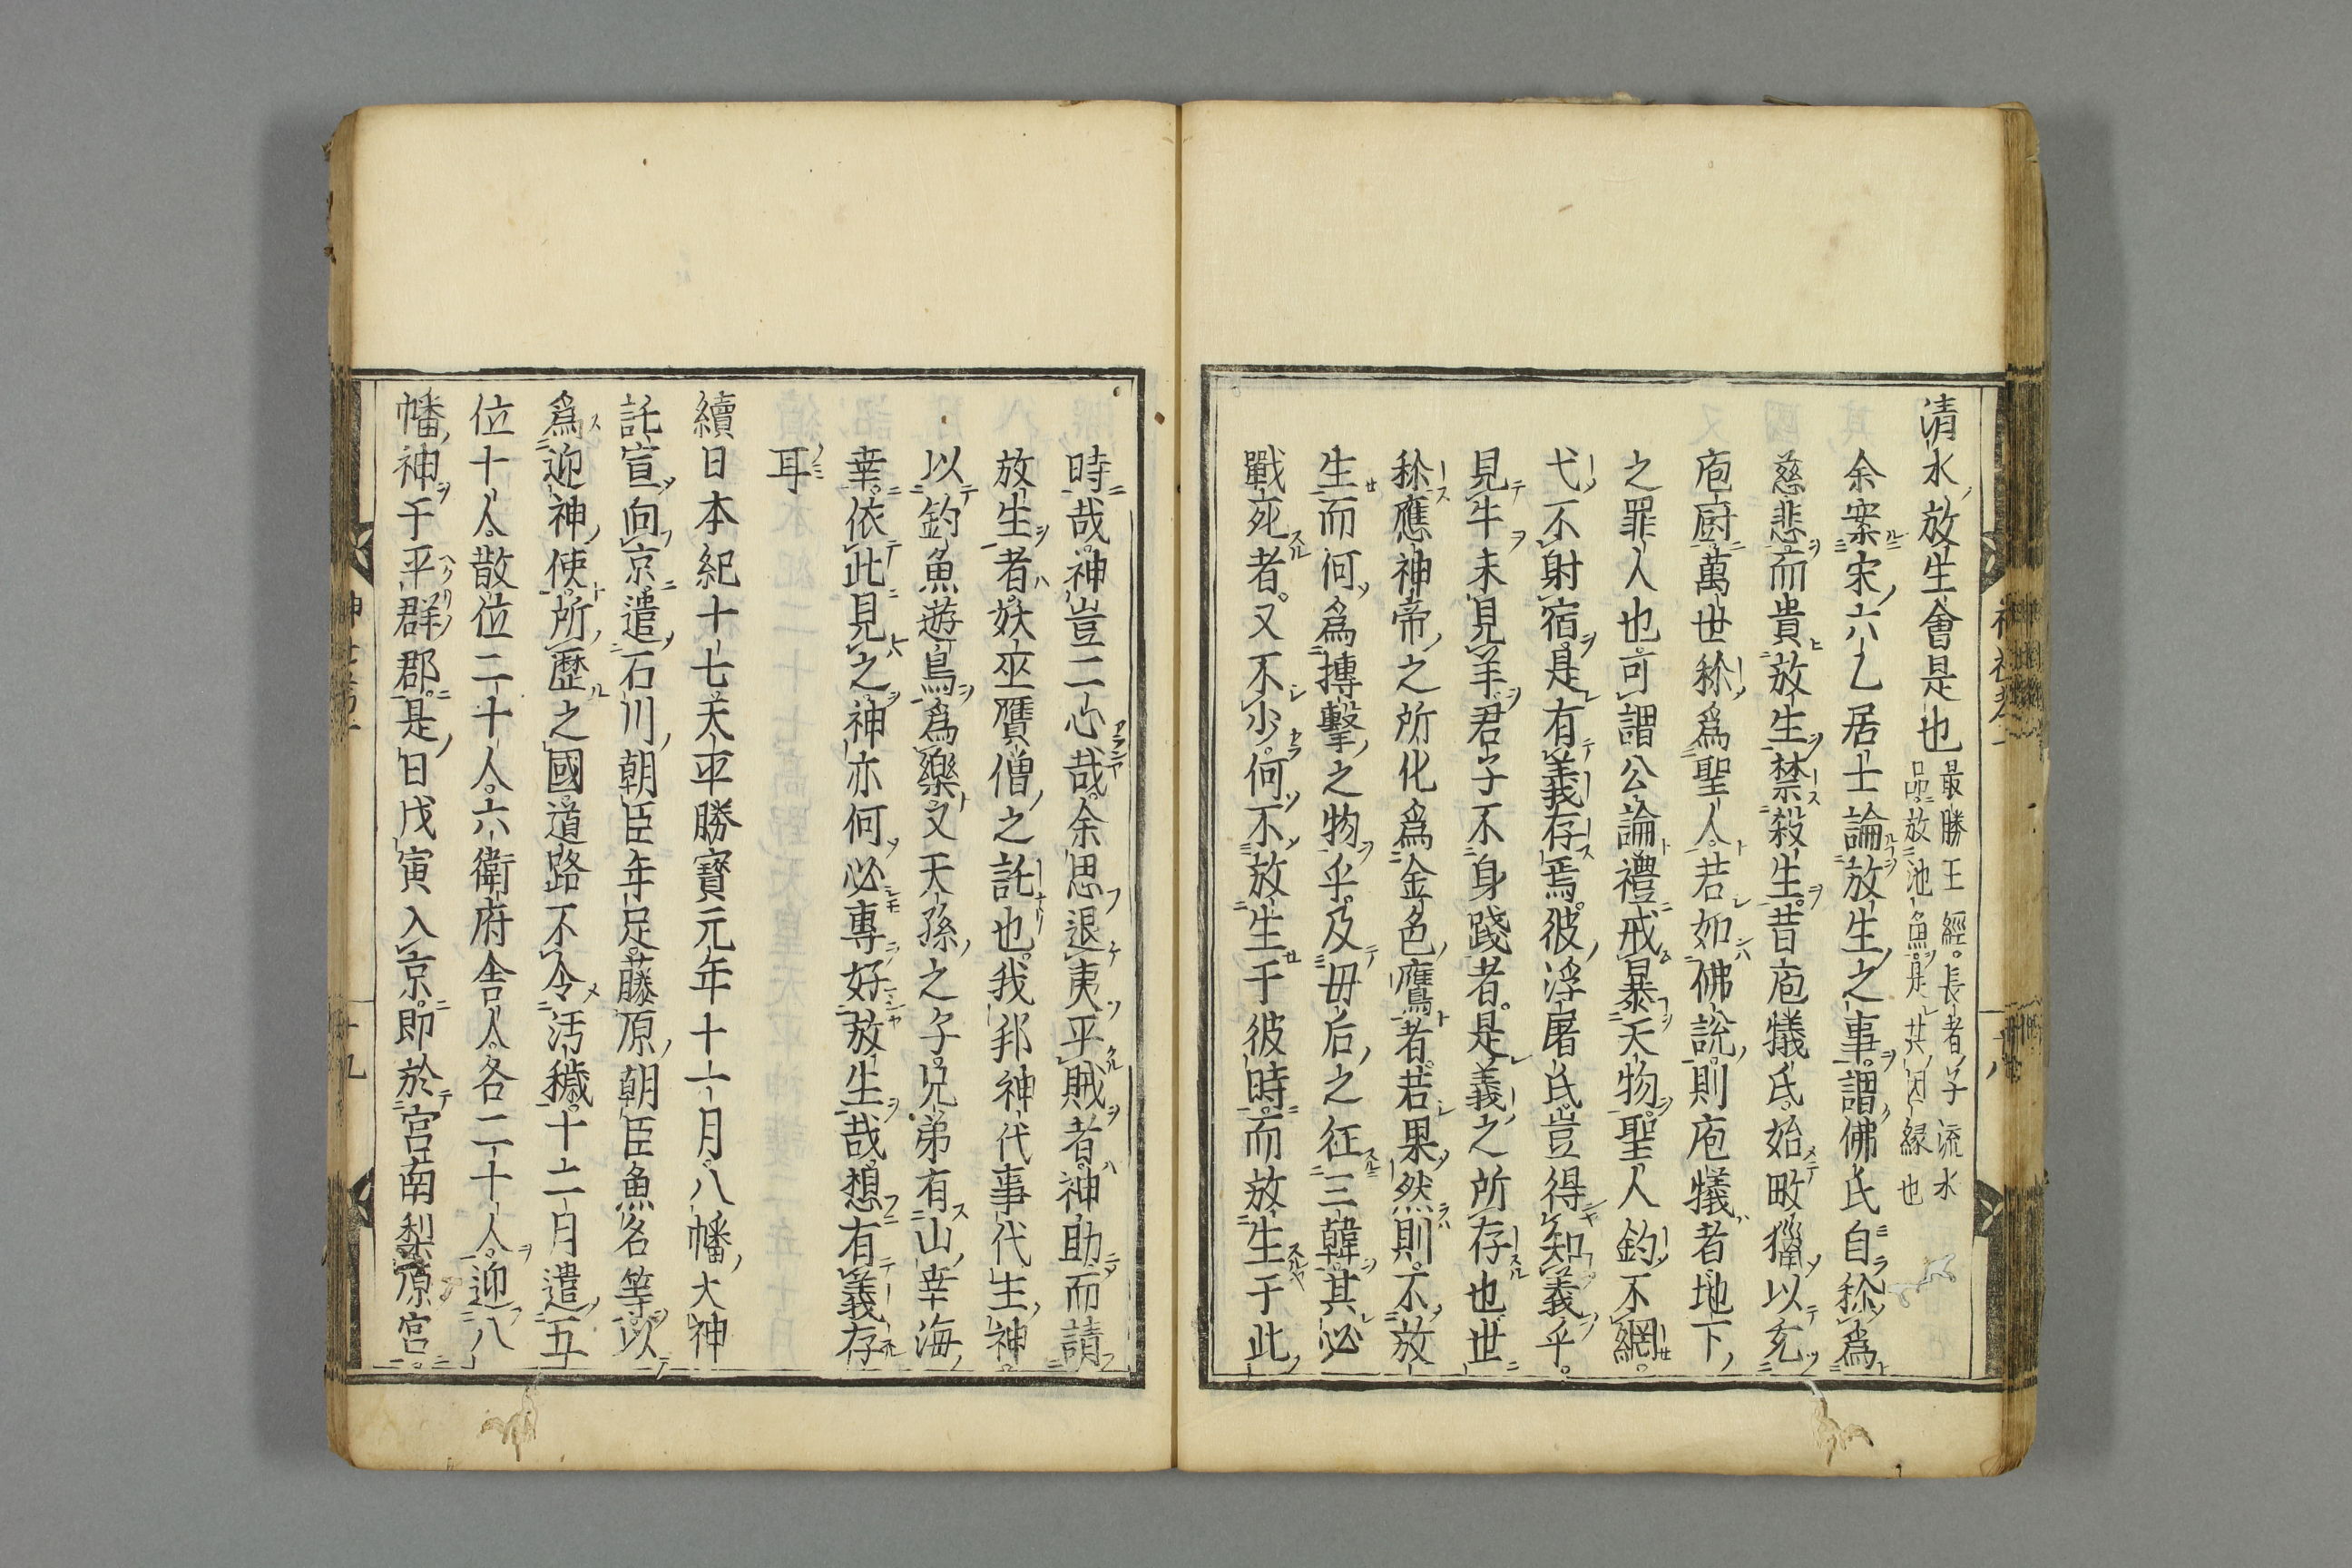 清水放生會是也
最勝王經長者子流水
品放池魚是其因縁也
余案宋六乙居士論放生之事謂佛氏自稱爲
慈悲而貴放生禁殺生昔庖犧氏始畋獵以充
庖厨萬世稱爲聖人若如佛説則庖犧者地下
之罪人也可謂公論禮戒暴天物聖人釣不網
弋不射宿是有義存焉彼浮屠氏豈得知義乎
見牛未見羊君子不身踐者是義之所存也世
稱應神帝之所化爲金色鷹者若果然則不放
生而何爲摶擊之物乎及毋后之征三韓其必
戰死者又不少何不放生于彼時而放生于此
時哉神豈二心哉余思退夷平賊者神助而請
放生者妖巫贋僧之託也我邦神代事代主神
以釣魚遊鳥爲樂又天孫之子兄弟有山幸海
幸依此見之神亦何必專好放生哉想有義存
耳
續日本紀十七天平勝寶元年十一月八幡大神
託宣向京遣石川朝臣年足藤原朝臣魚名等以
爲迎神使所歴之國道路不令汚穢十二月遣五
位十人散位二十人六衛府舎人各二十人迎八
幡神于平群郡是日戊寅入京即於宮南梨原宮